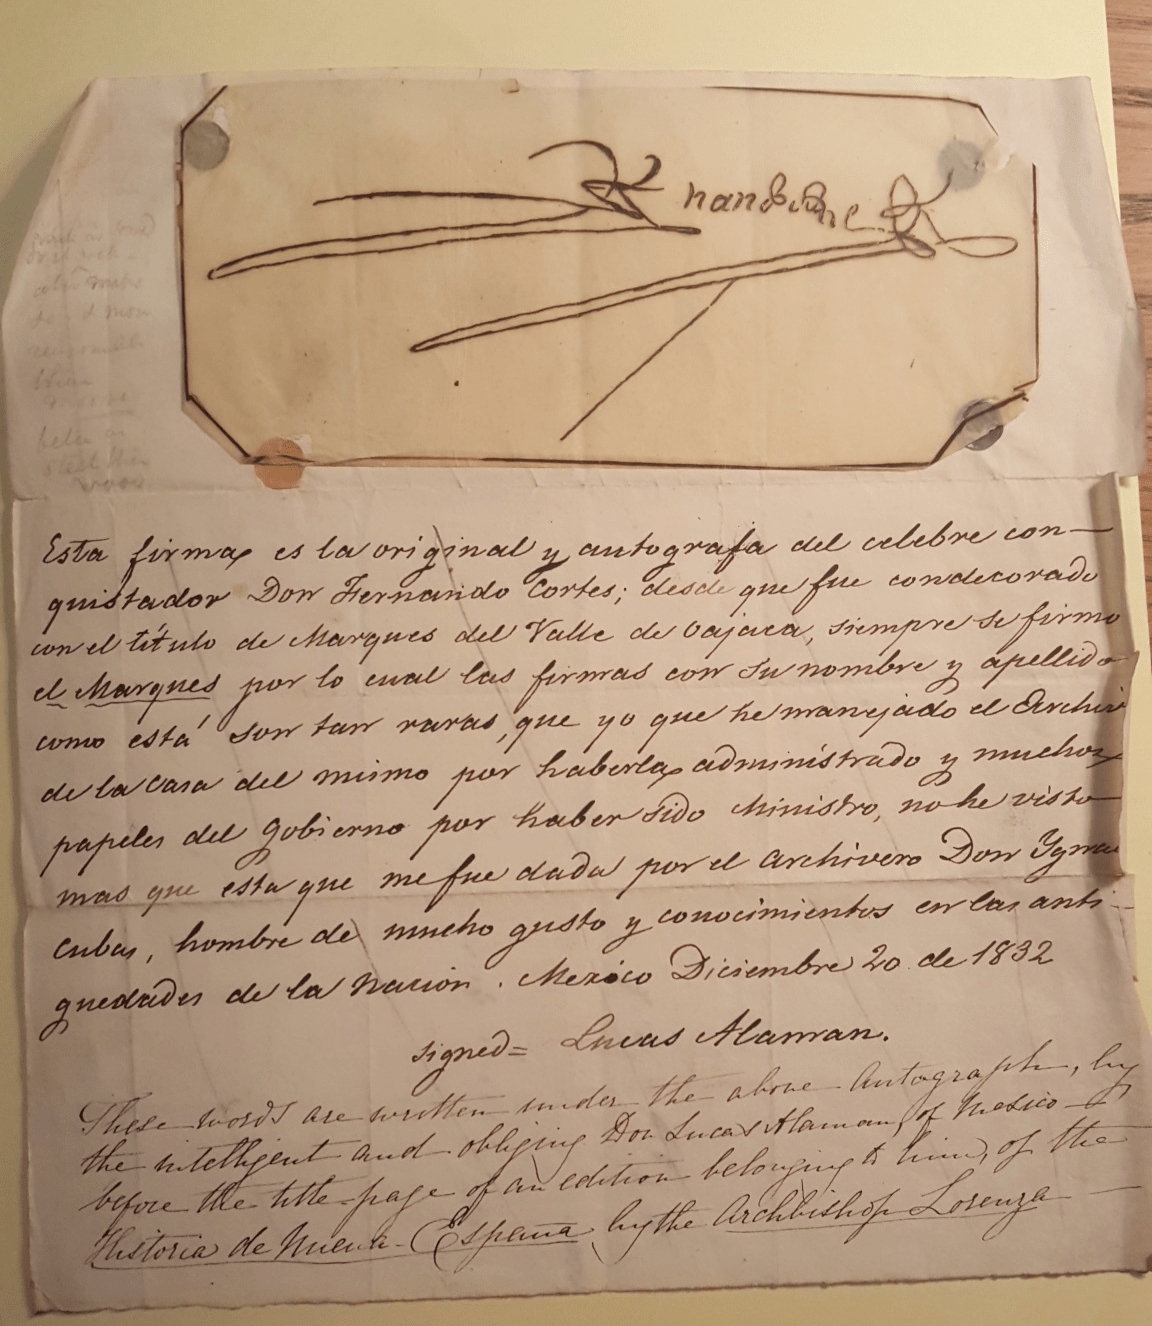 Esta firma es la original y autografa del celebre con-
quistador Don Fernando Cortes; desde que fue condecorado
con el título de Marques del Valle de Oajaca, siempre se firmo
el Marques por lo cual las firmas con su nombre y apellido
como está son tan raras, que yo que he manejado el Archivo
de la casa del mismo por haberla administrado y muchos
papeles del Gobierno por haber sido Ministro, no he visto
mas que esta que me fue dada por el archivero Don Ygnacio
Cubas, hombre de mucho gusto y conocimientos en las anti-
guedades de la Nacion. Mexico Diciembre 20 de 1832
signed= Lucas Alaman.
These words are written under the above Autograph, by
the intelligent and obliging Don Lucas Alaman, of Mexico -
before the title-page of an edition belonging to him, of the
Historia de Nueva España, by the Archbishop Lorenza -